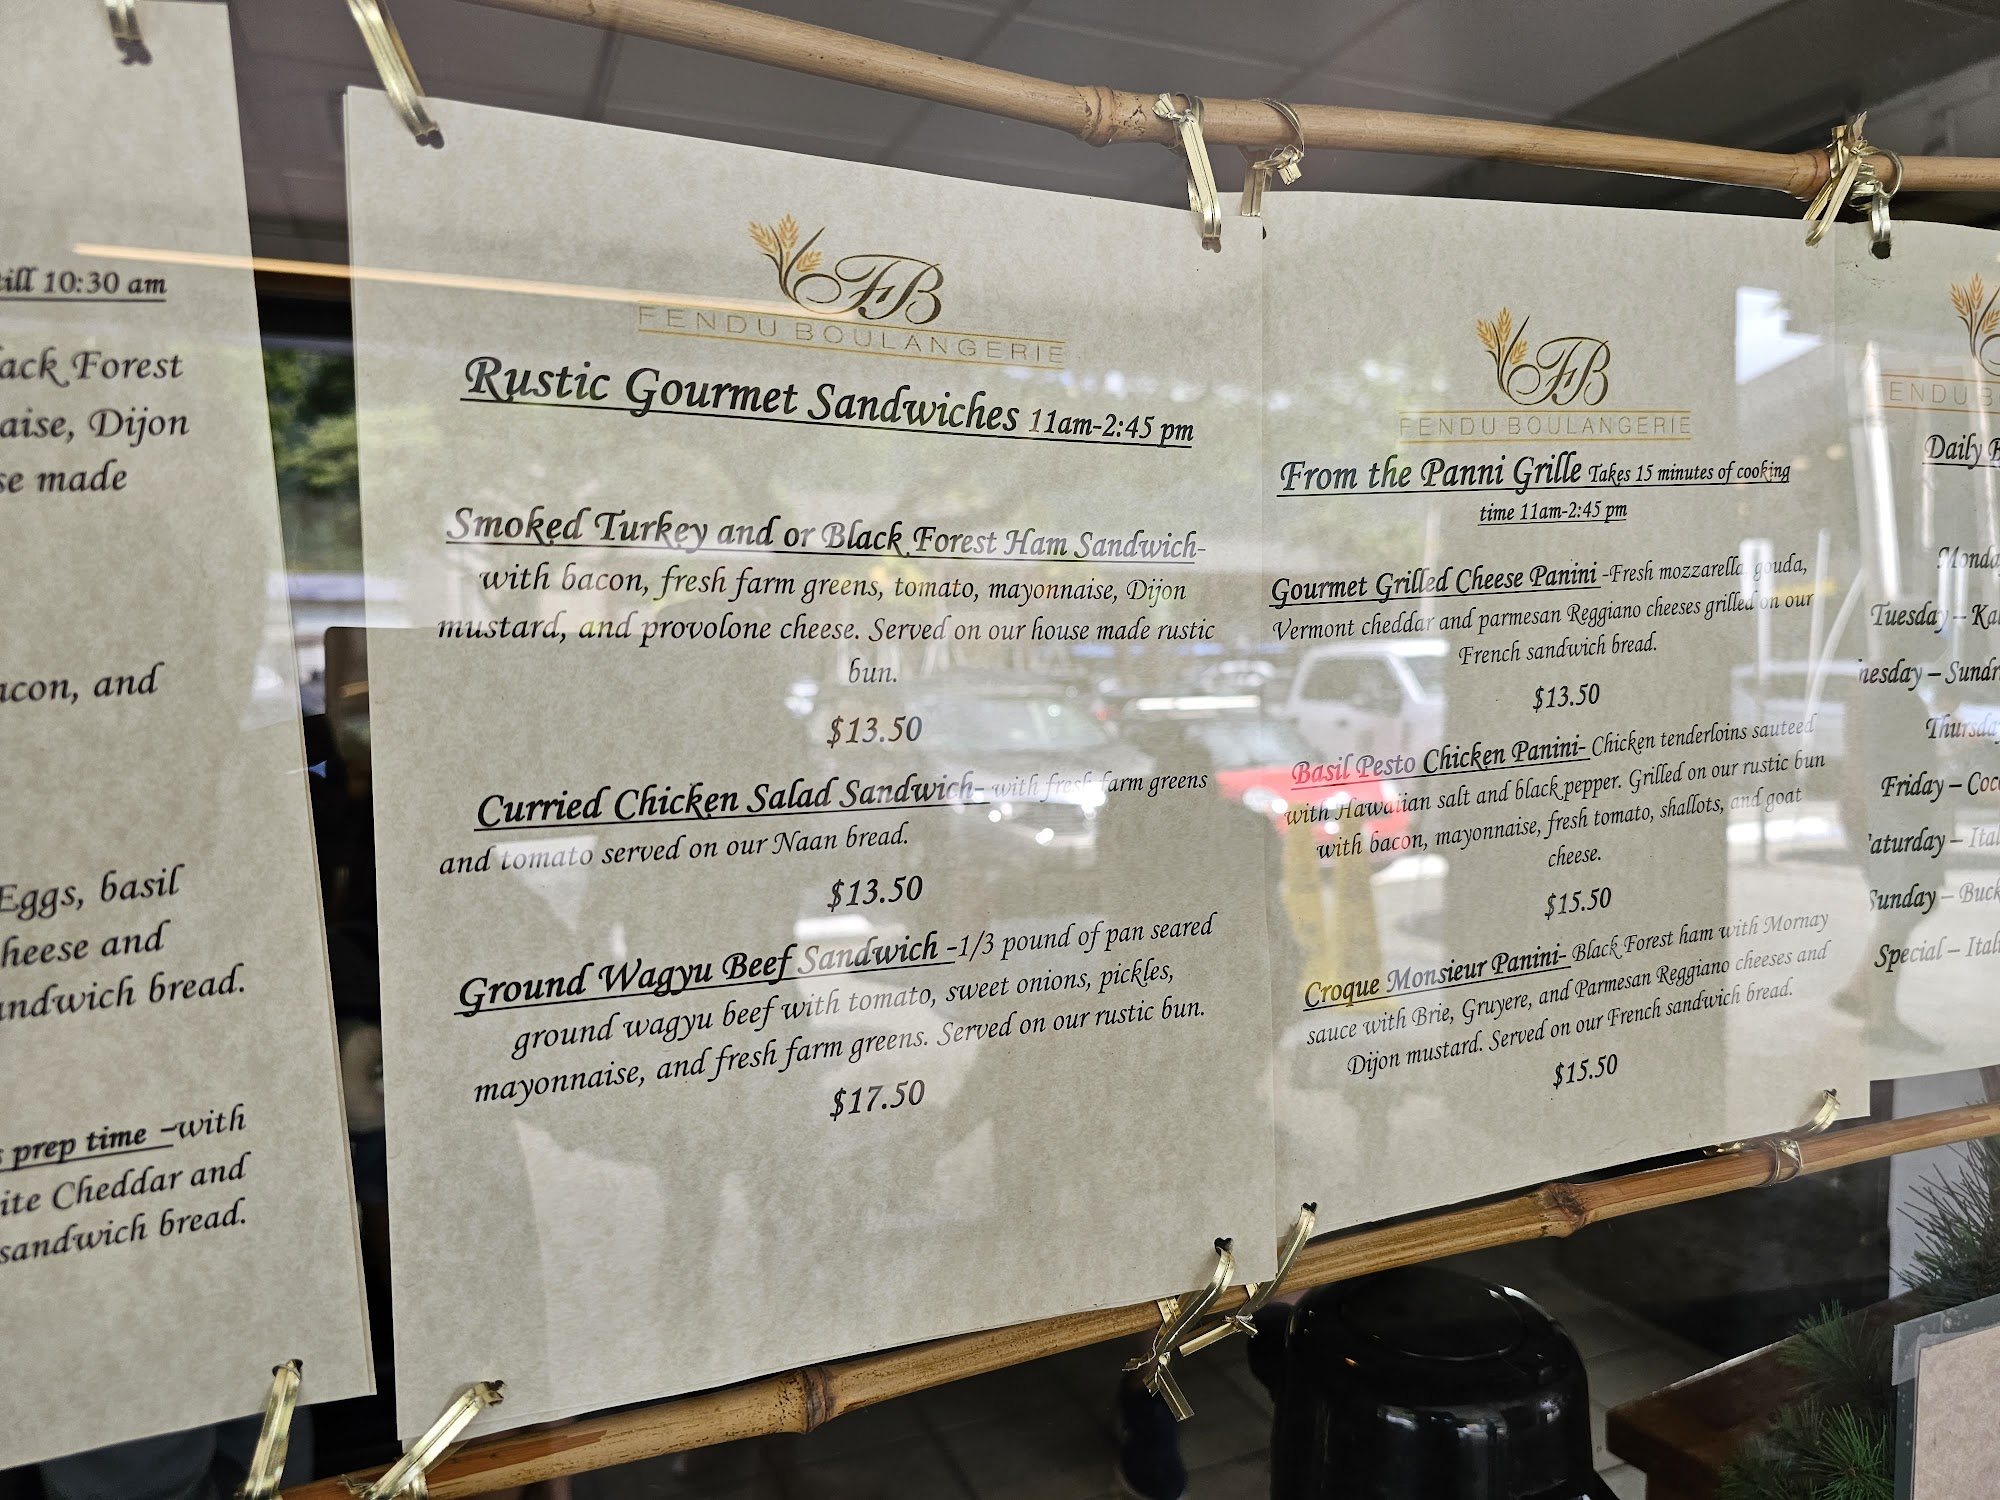 till 10:30 am
ack Forest
aise, Dijon
se made
acon, and
Eggs, basil
heese and
andwich bread.
s prep time -with
ite Cheddar and
sandwich bread.
FB
FENDU BOULANGERIE
Rustic Gourmet Sandwiches 11am-2:45 pm
Smoked Turkey and or Black Forest Ham Sandwich-
with bacon, fresh farm greens, tomato, mayonnaise, Dijon
mustard, and provolone cheese. Served on our house made rustic
bun.
$13.50
Curried Chicken Salad Sandwich- with fresh farm greens
and tomato served on our Naan bread.
$13.50
Ground Wagyu Beef Sandwich -1/3 pound of pan seared
ground wagyu beef with tomato, sweet onions, pickles,
mayonnaise, and fresh farm greens. Served on our rustic bun.
$17.50
FB
FENDU BOULANGERIE
From the Panni Grille Takes 15 minutes of cooking
time 11am-2:45 pm
Gourmet Grilled Cheese Panini -Fresh mozzarella, gouda,
Vermont cheddar and parmesan Reggiano cheeses grilled on our
French sandwich bread.
$13.50
Basil Pesto Chicken Panini- Chicken tenderloins sauteed
with Hawaiian salt and black pepper. Grilled on our rustic bun
with bacon, mayonnaise, fresh tomato, shallots, and goat
cheese.
$15.50
Croque Monsieur Panini- Black Forest ham with Mornay
sauce with Brie, Gruyere, and Parmesan Reggiano cheeses and
Dijon mustard. Served on our French sandwich bread.
$15.50
FENDU B
Daily
Monda
Tuesday – Ka
nesday – Sundr
Thursda
Friday – Coc
aturday – Ital
Sunday – Buck
Special – Ital